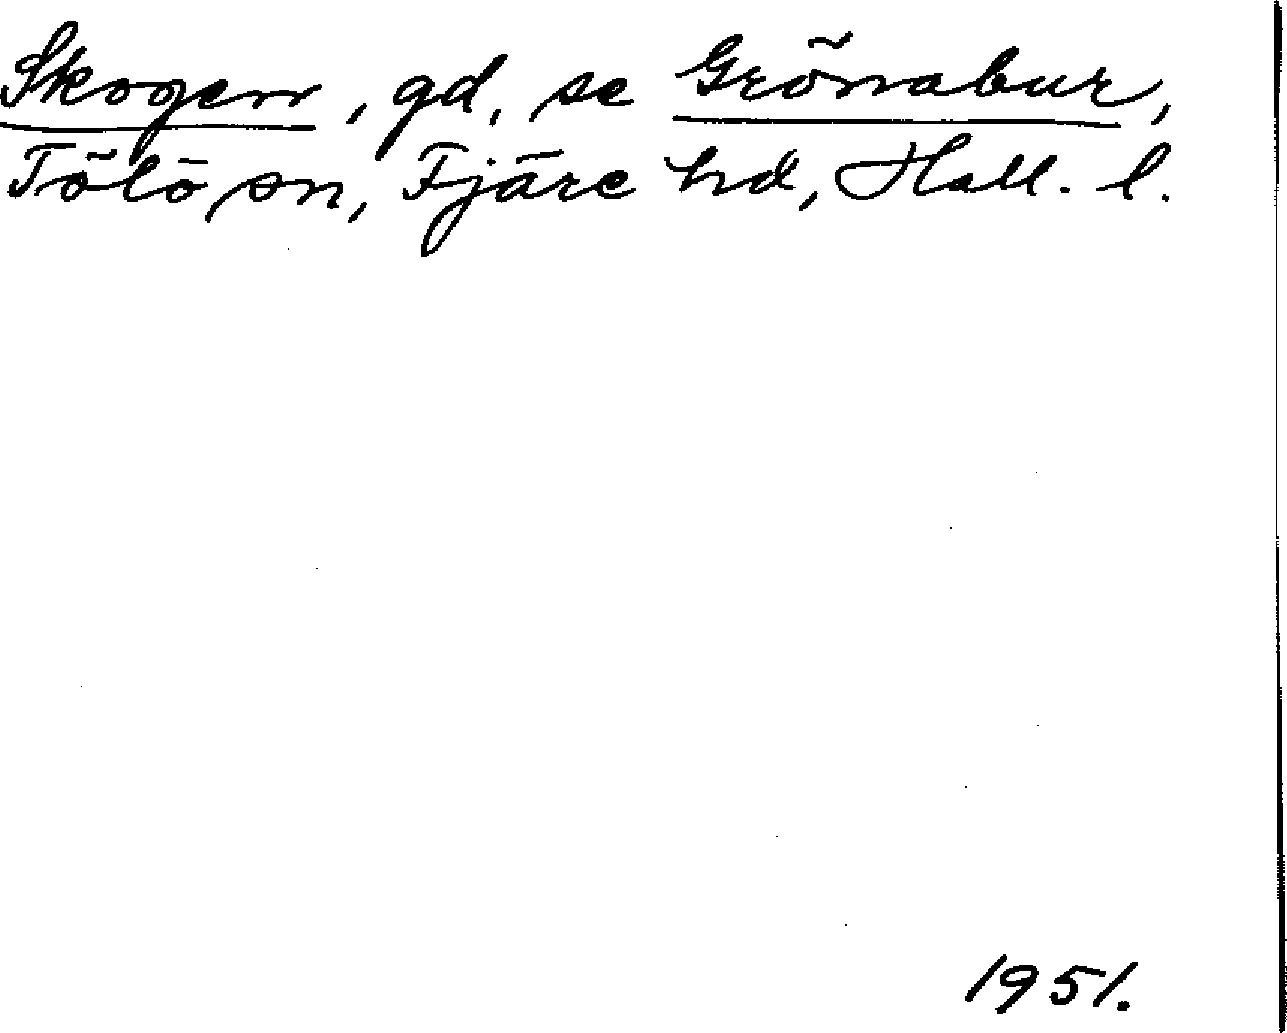 Skogen, gd, se Grönabur,
Tölö sn, Fjäre hd, Hall. l.
1951.